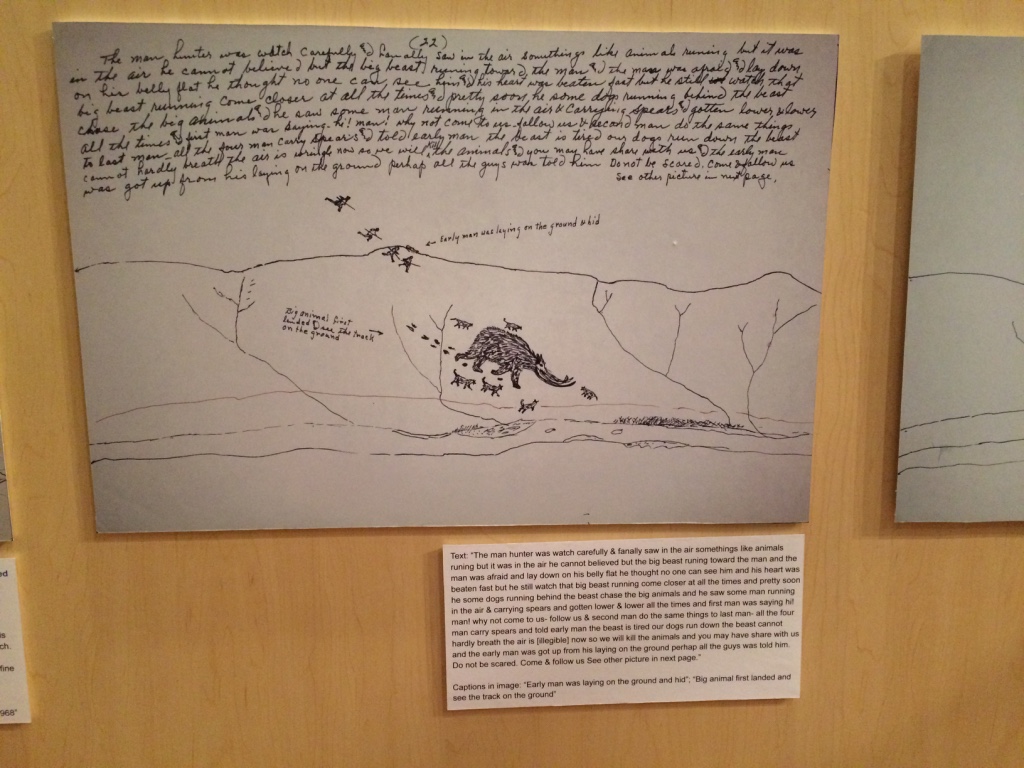 (22)
The man hunter was watch carefully & fanally saw in the air somethings like animals runing but it was
in the air he cannot believed but the big beast runing toward the man & the man was afraid & lay down
on his belly flat he thought no one can see him & his heart was beaten fast but he still watch that
big beast running come closer at all the times & pretty soon he some dogs running behind the beast
chase the big animals & he saw some man running in the air & carrying spears & gotten lower & lower
all the times & first man was saying hi! man! why not come to us- follow us & second man do the same things
to last man- all the four man carry spears & told early man the beast is tired our dogs run down the beast
cannot hardly breath the air is now so we will kill the animals & you may have share with us & the early man
was got up from his laying on the ground perhap all the guys was told him Do not be scared. Come & follow us
See other picture in next page.
← Early man was laying on the ground & hid
Big animal first
landed & see the track
on the ground →
Text: "The man hunter was watch carefully & fanally saw in the air somethings like animals
runing but it was in the air he cannot believed but the big beast runing toward the man and the
man was afraid and lay down on his belly flat he thought no one can see him and his heart was
beaten fast but he still watch that big beast running come closer at all the times and pretty soon
he some dogs running behind the beast chase the big animals and he saw some man running
in the air & carrying spears and gotten lower & lower all the times and first man was saying hi!
man! why not come to us- follow us & second man do the same things to last man- all the four
man carry spears and told early man the beast is tired our dogs run down the beast cannot
hardly breath the air is [illegible] now so we will kill the animals and you may have share with us
and the early man was got up from his laying on the ground perhap all the guys was told him.
Do not be scared. Come & follow us See other picture in next page."
Captions in image: "Early man was laying on the ground and hid"; "Big animal first landed and
see the track on the ground"
ed
is
ch.
fine
968"